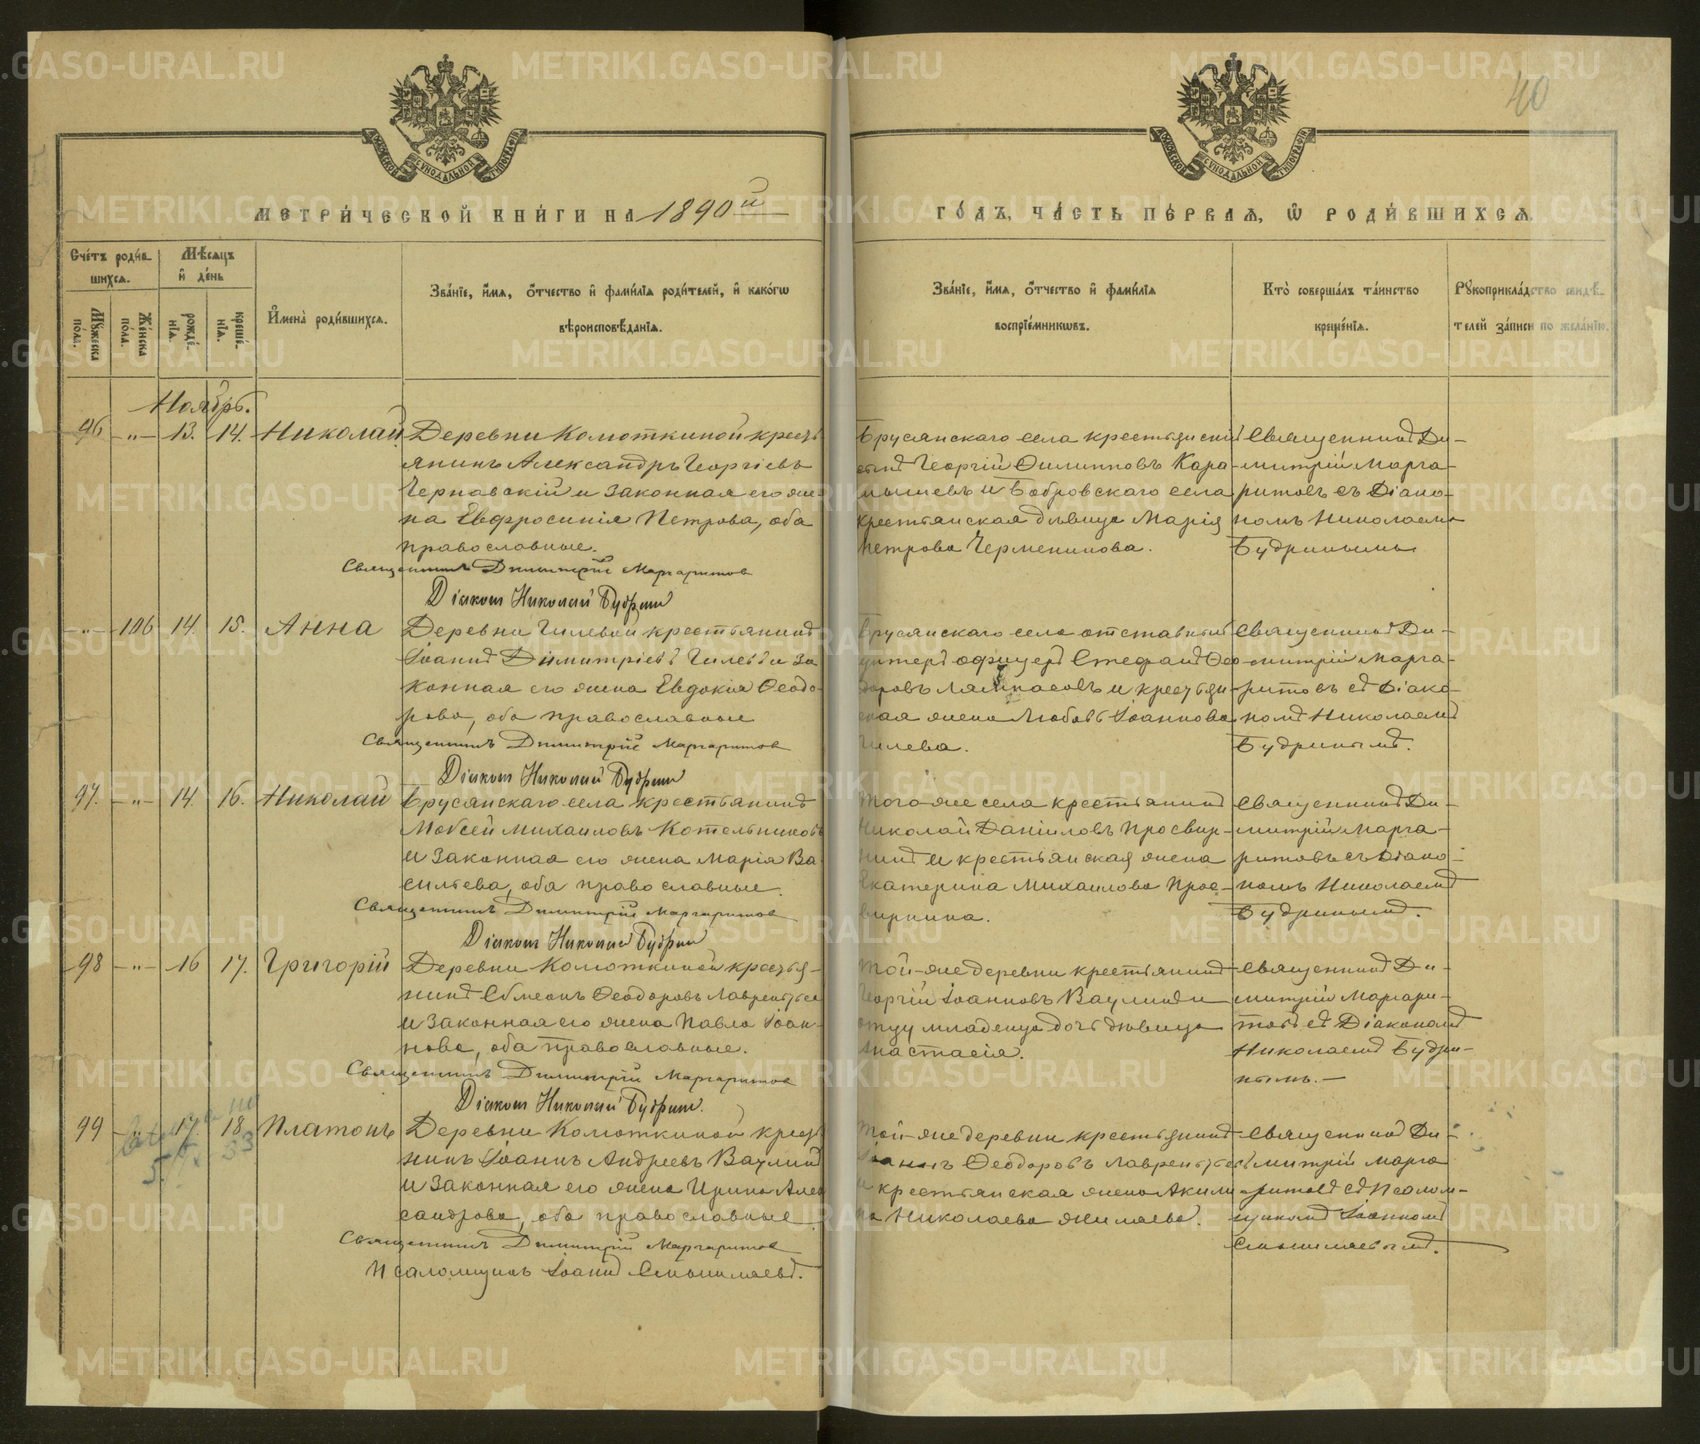 40
МЕТРИ́ЧЕСКОЙ КНИ́ГИ НА 1890 й
ГО́ДЪ, ЧА́СТЬ ПЕ́РВАЯ, Ѡ РОДИ́ВШИХСЯ.
Сче́тъ роди́вшихся.
Му́жеска по́ла.
Же́нска по́ла.
Мѣ́сяцъ и҆ де́нь
рожде́нїя.
креще́нїя.
И҆мена̀ роди́вшихся.
Зва́нїе, и҆́мя, ѻ҆́тчество и҆ фами́лїя роди́телей, и҆ како́гѡ
вѣроисповѣ́данїя.
Зва́нїе, и҆́мя, ѻ҆́тчество и҆ фами́лїя
воспрїе́мникѡвъ.
Кто̀ соверша́лъ та́инство
креще́нїя.
Рꙋкоприкла́дство свидѣ́-
телей за́писи по жела́нїю.
Ноябрь.
96 -"- 13. 14. Николай
Деревни Колоткиной кресть
янинъ Александръ Георгіевъ
Чернавскій и законная его же
на Евфросинія Петрова, оба
православные.
Священникъ Димитрій Маргаритов
Діакон Николай Будрин
Брусянскаго села крестьянскій
сынъ Георгій Филипповъ Кара-
мышевъ и Бобровскаго села
крестьянская дѣвица Марія
Петрова Черменинова.
Священникъ Ди-
митрій Марга-
ритовъ съ Діако-
номъ Николаемъ
Будринымъ
-"- 106 14. 15. Анна
Деревни Гилевой крестьянинъ
Іоаннъ Димитріевъ Гилевъ и за
конная его жена Евдокія Ѳеодо-
рова, оба православные
Священникъ Димитрій Маргаритов
Діакон Николай Будрин
Брусянскаго села отставный
унтеръ офицеръ Стефанъ Ѳео-
доровъ Лямпасовъ и крестьян-
ская жена Любовь Іоаннова
Гилева.
Священникъ Ди-
митрій Марга-
ритовъ съ Діако-
номъ Николаемъ
Будринымъ.
97. -"- 14. 16. Николай
Брусянскаго села крестьянинъ
Моѵсей Михаиловъ Котельниковъ
и законная его жена Марія Ва
сильева, оба православные.
Священникъ Димитрій Маргаритов
Діакон Николай Будрин
Того-же села крестьянинъ
Николай Даніиловъ Просвир-
нинъ и крестьянская жена
Екатерина Михаилова Прос-
вирнина.
Священникъ Ди-
митрій Марга-
ритовъ съ Діако-
номъ Николаемъ
Будринымъ.
98 -"- 16 17. Григорій
Деревни Колоткиной крестья-
нинъ Сѵмеонъ Ѳеодоровъ Лаврентьев
и законная его жена Павла Іоан-
нова, оба православные.
Священникъ Димитрій Маргаритов
Діакон Николай Будрин.
Той-же деревни крестьянинъ
Георгій Іоанновъ Ваулинъ и
отцу младенца дочь дѣвица
Анастасія.
Священникъ Ди-
митрій Маргари-
товъ съ Діакономъ
Николаемъ Будри-
нымъ.-
99 17. 18. Платонъ
Деревни Колоткиной кресть
нинъ Іоаннъ Андреевъ Ваулинъ
и законная его жена Ирина Алек
сандрова, оба православные.
Священникъ Димитрій Маргаритов
Псаломщикъ Іоаннъ Смышляевъ.
Той-же деревни крестьянинъ
Іоаннъ Ѳеодоровъ Лаврентьевъ
и крестьянская жена Акили-
на Николаева Жиляева.
Священникъ Ди-
митрій Марга
ритовъ съ Псалом-
щикомъ Іоанномъ
Смышляевымъ.